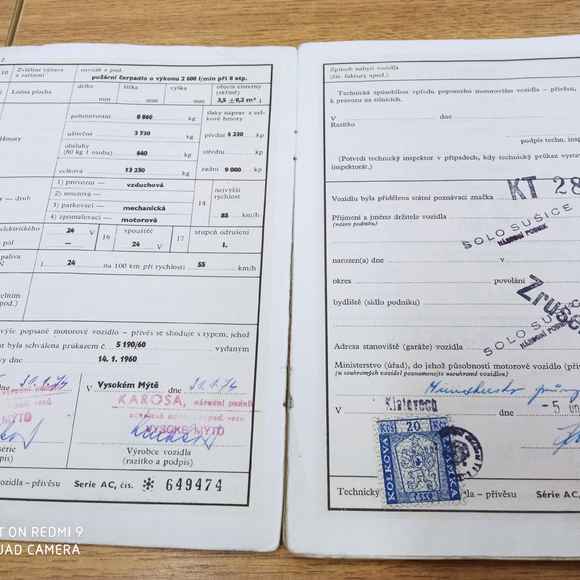 10
Zvláštní výbava
a zařízení
navíják a pod.
požární čerpadlo o výkonu 2 600 l/min při 8 atp.
Ložná plocha
délka
šířka
výška
objem skříně
mm
mm
mm
3,5 ±0,2 m³
pohotovostní 8 860 kg
užitečná 3 730 kg
obsluhy
(80 kg 1 osoba) 640 kg
celková 13 230 kg
přední 4 230 kp
kp
zadní 9 000 kp
1) provozní — vzduchová
2) nouzová —
3) parkovací — mechanická
4) zpomalovací — motorová
14
nejvyšší
rychlost
85 km/h
24 V
16
spouštěč
24 V
17
stupeň odrušení
I.
pól —
24 na 100 km při rychlosti 55 km/h
výše popsané motorové vozidlo – přívěs se shoduje s typem, jehož
byla schválena průkazem č. 5 190/60 vydaným
14. 1. 1960
V Vysokém Mýtě dne
KAROSA, národní podnik
VYSOKÉ MÝTO
Výrobce vozidla
(razítko a podpis)
a podpis)
vozidla – přívěsu Série AC, čís. ✻ 649474
ON REDMI 9
QUAD CAMERA
Způsob nabytí vozidla
(čís. faktury apod.)
Technická způsobilost vpředu popsaného motorového vozidla – přívěsu,
k provozu na silnicích.
V dne
Razítko
podpis techn.
(Potvrdí technický inspektor v případech, kdy technický průkaz
inspektorát.)
Vozidlu byla přidělena státní poznávací značka KT 28
Příjmení a jméno držitele vozidla
(název podniku)
SOLO SUŠICE
NÁRODNÍ PODNIK
narozen(a) dne v
okres povolání
bydliště (sídlo podniku)
SOLO SUŠICE
NÁRODNÍ PODNIK
Adresa stanoviště (garáže) vozidla
Ministerstvo (úřad), do jehož působnosti motorové vozidlo
(u soukromých vozidel poznamenejte soukromé vozidlo)
V Klatovech dne
Kčs 20 Kčs
KOLKOVÁ
ZNÁMKA
ČSSR
Technický
vozidla – přívěsu Série AC,